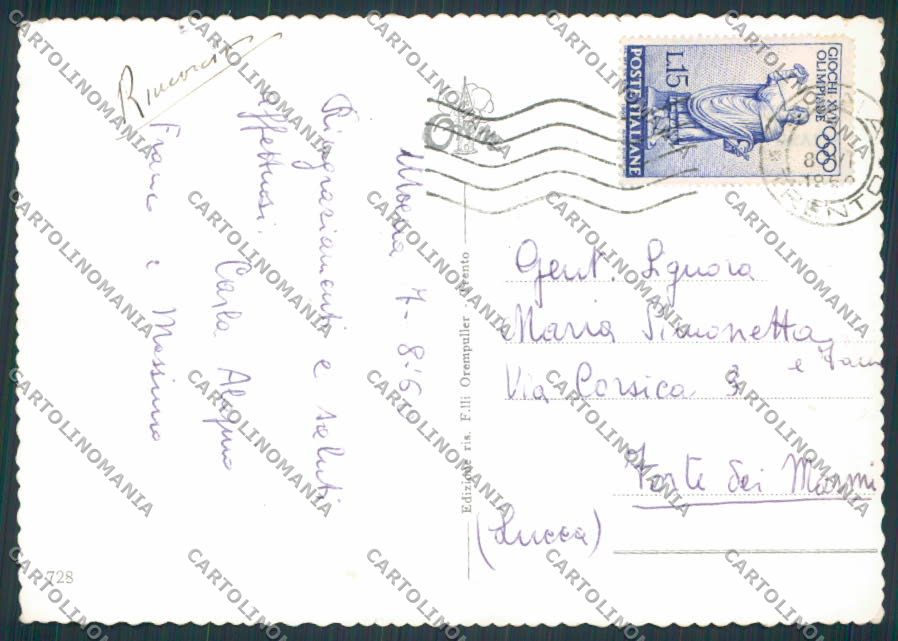 Ringraziamenti e saluti
affettuosi.
Carla
Franc e Massimo
7-8-6
Gent. Signora
Maria Simonetta
e
Via Corsica 3
Forte dei Marmi
(Lucca)
GIOCHI XVII OLIMPIADE
L.15
POSTE ITALIANE
TRENTO
Edizione ris. F.lli Orempuller - Trento
728
CARTOLINOMANIA